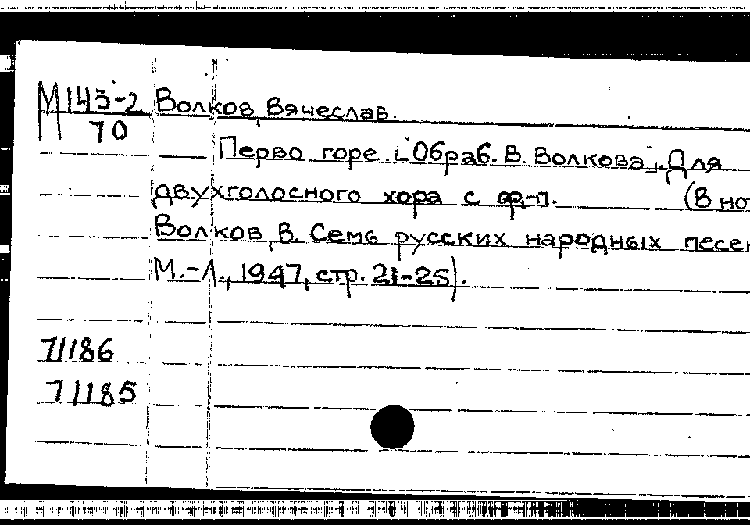 М 143-2 Волков, Вячеслав.
70
Перво горе. [Обраб. В. Волкова]. Для
двухголосного хора с ф-п. (В но
Волков, В. Семь русских народных песе
М.-Л., 1947, стр. 21-25).
71186
71185